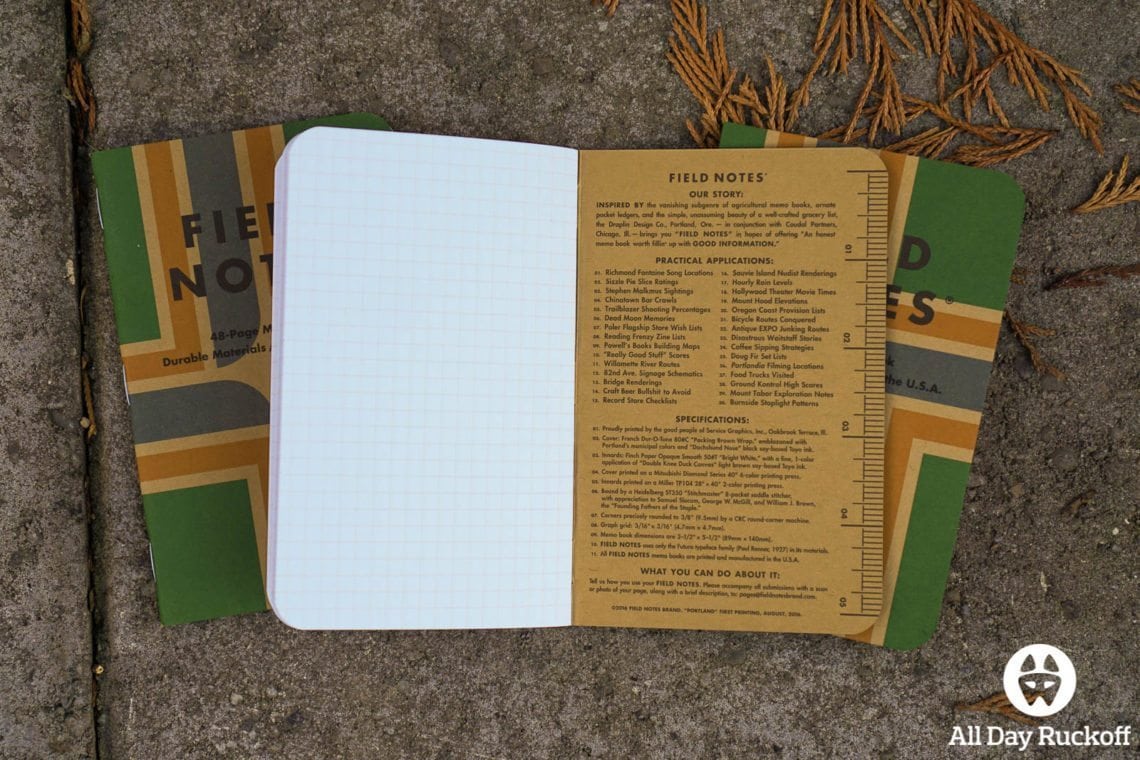 FIELD NOTES
OUR STORY:
INSPIRED BY the vanishing subgenre of agricultural memo books, ornate
pocket ledgers, and the simple, unassuming beauty of a well-crafted grocery list,
the Draplin Design Co., Portland, Ore. — in conjunction with Coudal Partners,
Chicago, Ill. — brings you "FIELD NOTES" in hopes of offering "An honest
memo book worth fillin' up with GOOD INFORMATION."
PRACTICAL APPLICATIONS:
01. Richmond Fontaine Song Locations
02. Sizzle Pie Slice Ratings
03. Stephen Malkmus Sightings
04. Chinatown Bar Crawls
05. Trailblazer Shooting Percentages
06. Dead Moon Memories
07. Poler Flagship Store Wish Lists
08. Reading Frenzy Zine Lists
09. Powell's Books Building Maps
10. "Really Good Stuff" Scores
11. Willamette River Routes
12. 82nd Ave. Signage Schematics
13. Bridge Renderings
14. Craft Beer Bullshit to Avoid
15. Record Store Checklists
16. Sauvie Island Nudist Renderings
17. Hourly Rain Levels
18. Hollywood Theater Movie Times
19. Mount Hood Elevations
20. Oregon Coast Provision Lists
21. Bicycle Routes Conquered
22. Antique EXPO Junking Routes
23. Disastrous Waitstaff Stories
24. Coffee Sipping Strategies
25. Doug Fir Set Lists
26. Portlandia Filming Locations
27. Food Trucks Visited
28. Ground Kontrol High Scores
29. Mount Tabor Exploration Notes
30. Burnside Stoplight Patterns
SPECIFICATIONS:
01. Proudly printed by the good people of Service Graphics, Inc., Oakbrook Terrace, Ill.
02. Cover: French Dur-O-Tone 80#C "Packing Brown Wrap," emblazoned with
Portland's municipal colors and "Dachshund Nose" black soy-based Toyo ink.
03. Innards: Finch Paper Opaque Smooth 50#T "Bright White," with a fine, 1-color
application of "Double Knee Duck Canvas" light brown soy-based Toyo ink.
04. Cover printed on a Mitsubishi Diamond Series 40" 6-color printing press.
05. Innards printed on a Miller TP104 28" x 40" 2-color printing press.
06. Bound by a Heidelberg ST350 "Stitchmaster" 8-pocket saddle stitcher,
with appreciation to Samuel Slocum, George W. McGill, and William J. Brown,
the "Founding Fathers of the Staple."
07. Corners precisely rounded to 3/8" (9.5mm) by a CRC round-corner machine.
08. Graph grid: 3/16" x 3/16" (4.7mm x 4.7mm).
09. Memo book dimensions are 3-1/2" x 5-1/2" (89mm x 140mm).
10. FIELD NOTES uses only the Futura typeface family (Paul Renner, 1927) in its materials.
11. All FIELD NOTES memo books are printed and manufactured in the U.S.A.
WHAT YOU CAN DO ABOUT IT:
Tell us how you use your FIELD NOTES. Please accompany all submissions with a scan
or photo of your page, along with a brief description, to: pages@fieldnotesbrand.com.
©2016 FIELD NOTES BRAND. "PORTLAND" FIRST PRINTING, AUGUST, 2016.
01
02
03
04
05
FIE
NOT
48-Page M
Durable Materials
D
ES®
k
the U.S.A.
All Day Ruckoff